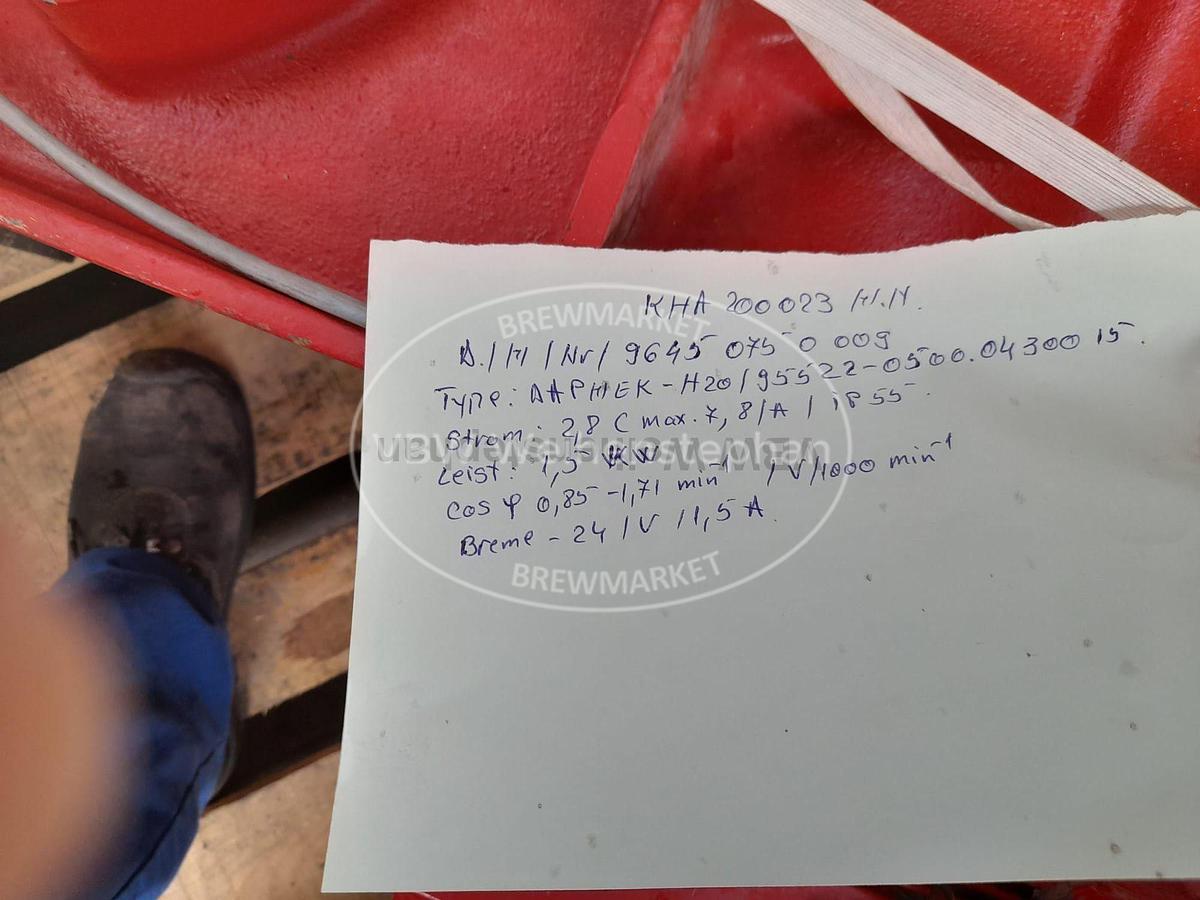 BREWMARKET
KHA 200023 H.N.
A./H/Nr/ 9645 075 0 009
Type: AAPHEK-H20/95522-0500.0430015.
Strom: 2,8 C max. 7,8/A / IP 55.
Leist: 1,5 KW
Cos φ 0,85-1,71 min⁻¹ /V/1000 min⁻¹
Breme - 24/V/1,5 A.
BREWMARKET